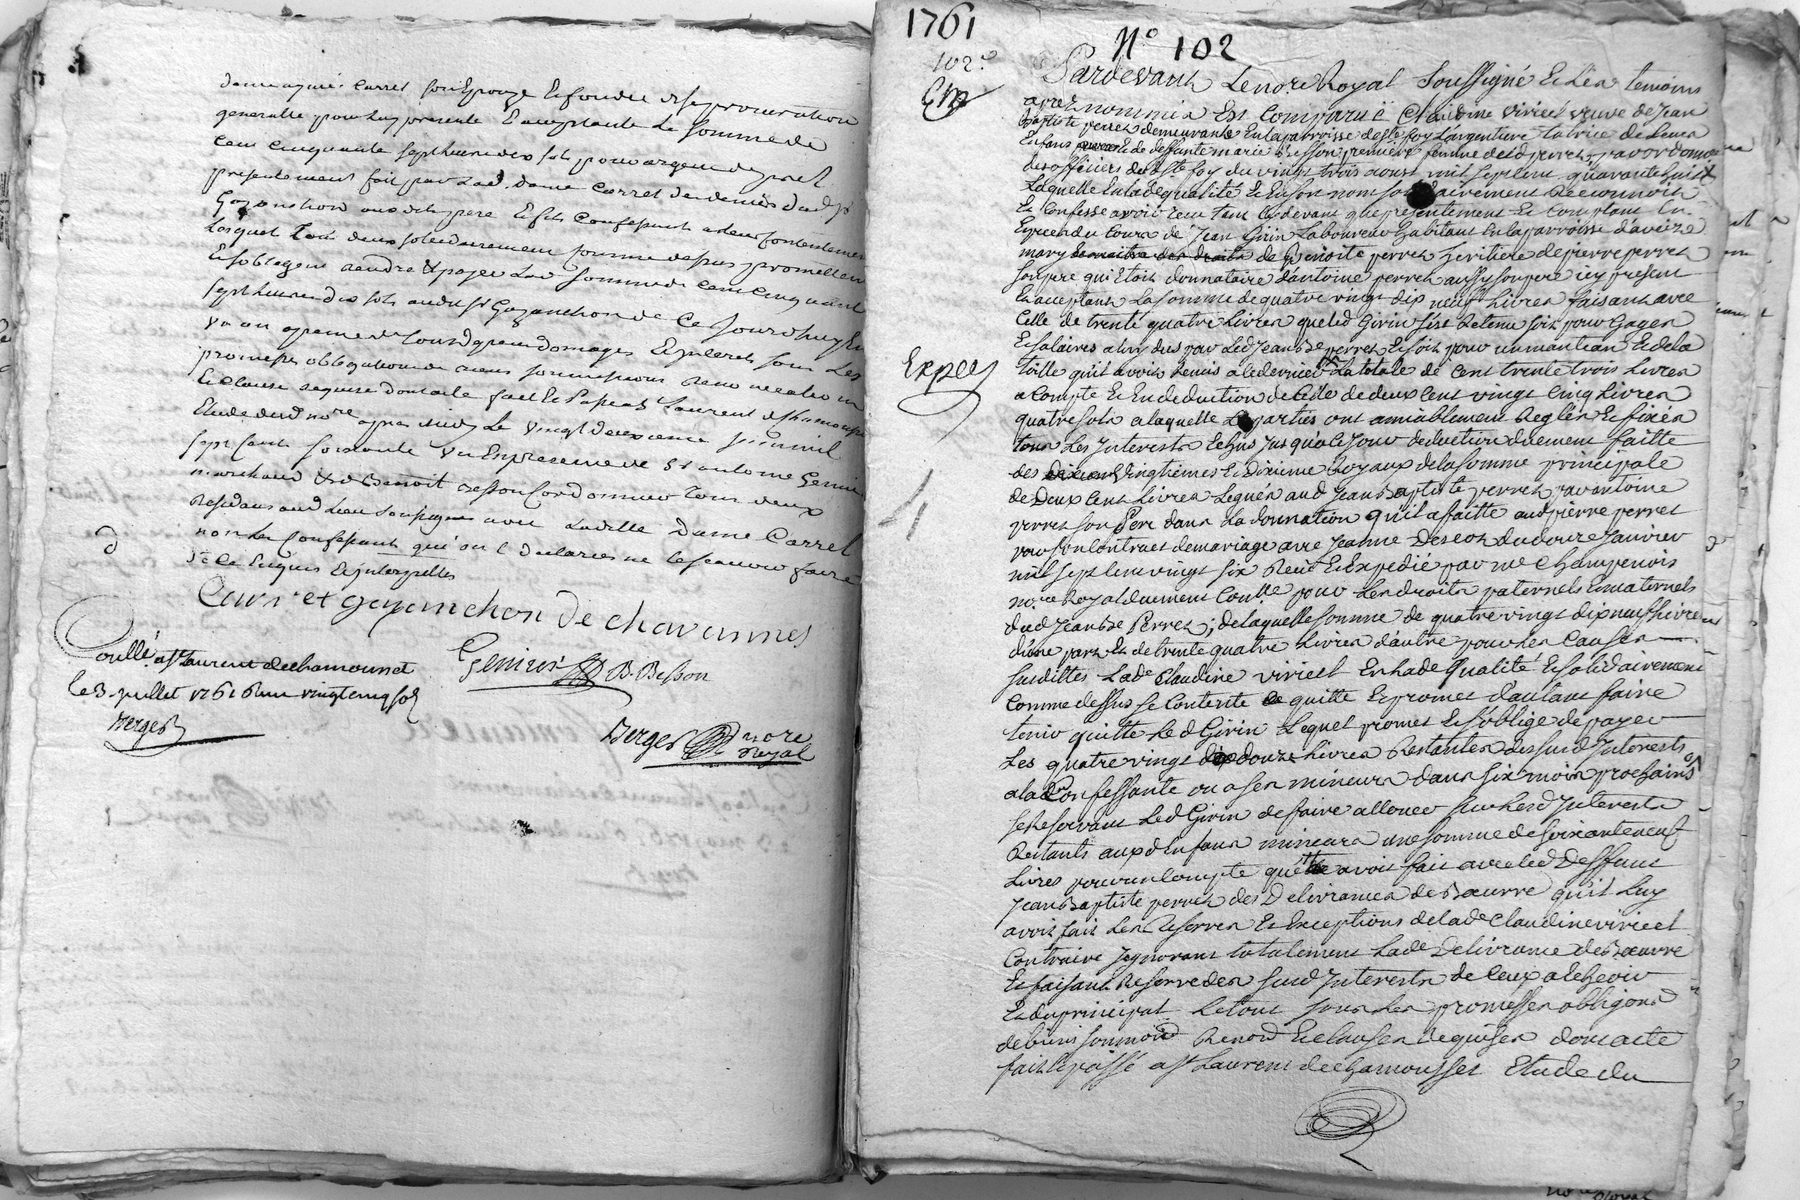 dame aymé Carret son Epouze Et fondée de sa procuration
generalle pour luy presente Et acceptante La somme de
Cent cinquante sept livres dix sols pour argent de pret
presentement fait par Lad. dame Carret des deniers dud. Sr
Goyonchon aux dits pere Et fils Confessants a leur contentement
Lesquel tous deux solidairement comme dessus promettent
Et sobligent arendre Et payer Lad. somme de Cent Cinquante
sept livres dix sols audit Sr Goyonchon de Ce Jourdhuy En
un an apeine de tous depens domages Et interets sous Les
promesses obligations de biens soumissions Renonciations
Et Clause requise dont acte fait Et Passé a St Laurent de Chamousset
Etude dud. nore apres midy Le vingt deuxieme Juin mil
sept Cents soixante un En presence de Sr antoine Genier
marchand Et de Benoit Besson Cordonnier tous deux
Residans aud. Lieu soussignés avec Laditte Dame Carret
non Les Confessants qui ont declarés ne le scavoir faire
de Ce Enquis Et interpellés
Carret goyonchon de chavannes
Genier B. Besson
Conllé a St Laurent de chamousset
le 3 juillet 1761 Reçu vingt cinq sols
Berger
Berger nore
Royal
1761
N° 102
102e
Expéé
Pardevant Le nore Royal Soussigné Et Les temoins
apres nommés Est Comparue Claudine viricel veuve de Jean
Baptiste perret demeurante En la parroisse de Ste foy Largentiere tutrice de Leurs
Enfans de deffunte marie Besson premiere femme dud. perret, par ordonnance
des officiers dud. Ste foy du vingt trois aoust mil sept cent quarante huit
Laquelle En lad. qualité Et En son nom solidairement Reconnoit
Et Confesse avoir recu tant Cy devant que presentement Et Comptant En
Especes du Cours de Jean Girin Laboureur habitant En la parroisse d'aveize
mary de Benoite perret heritiere de pierre perret
son pere qui Etoit donnataire d'antoine perret aussy son pere icy present
Et acceptant La somme de quatre vingt dix neuf Livres faisant avec
Celle de trente quatre Livres que led Girin sest Retenu soit pour Gages
Et salaires a luy dus par Led Jean Bte perret Et soit pour un manteau Et de la
toille qu'il avoit Remis aled dernier La totale de Cent trente trois Livres
a Compte Et En deduction de Celle de deux Cent vingt Cinq Livres
quatre sols a laquelle Les parties ont amiablement Reglés Et fixés
tous Les Interests Echus jusqu'a Ce jour deduction duement faitte
des vingtiemes Et Dixieme Royaux de la somme principale
de Deux Cent Livres Legués aud Jean Baptiste perret par antoine
perret son Pere dans La donnation qu'il a faitte aud pierre perret
par son Contract de mariage avec Jeanne Descot du douze Janvier
mil sept Cent vingt six Recu Et Expedié par me Champenois
nore Royal duement Conllé pour Les droits paternels Et maternels
dud Jean Bte Perret; de laquelle somme de quatre vingt dix neuf Livres
d'une part Et de trente quatre Livres d'autre pour Les Causes
susdittes Lade Claudine viricel En lade Qualité Et solidairement
Comme dessus se Contente quitte Et promet d'autant faire
tenir quitte Led Girin Lequel promet Et s'oblige de payer
Les quatre vingt douze Livres Restantes desusd Interests
a lad Confessante ou a ses mineurs dans six mois prochains
se Reservant Led Girin de faire allouer sur Lesd Interests
Restants auxd Enfans mineurs une somme de soixante neuf
Livres pour un Compte qu'il avoit fait avec led Deffunt
Jean Baptiste perret des Delivrances de Beurre qu'il Luy
avoit fait Les Reserves Et Exceptions de lade Claudine viricel
Contraire Ignorant totalement Lade Delivrance de Beurre
Et faisant Reserve des susd Interests de Ceux a Echeoir
Et du principal Le tout sous Les promesses obligons
de biens soumons Renons Et Clauses Requises dont acte
fait Et passé a St Laurent de Chamousset Etude du